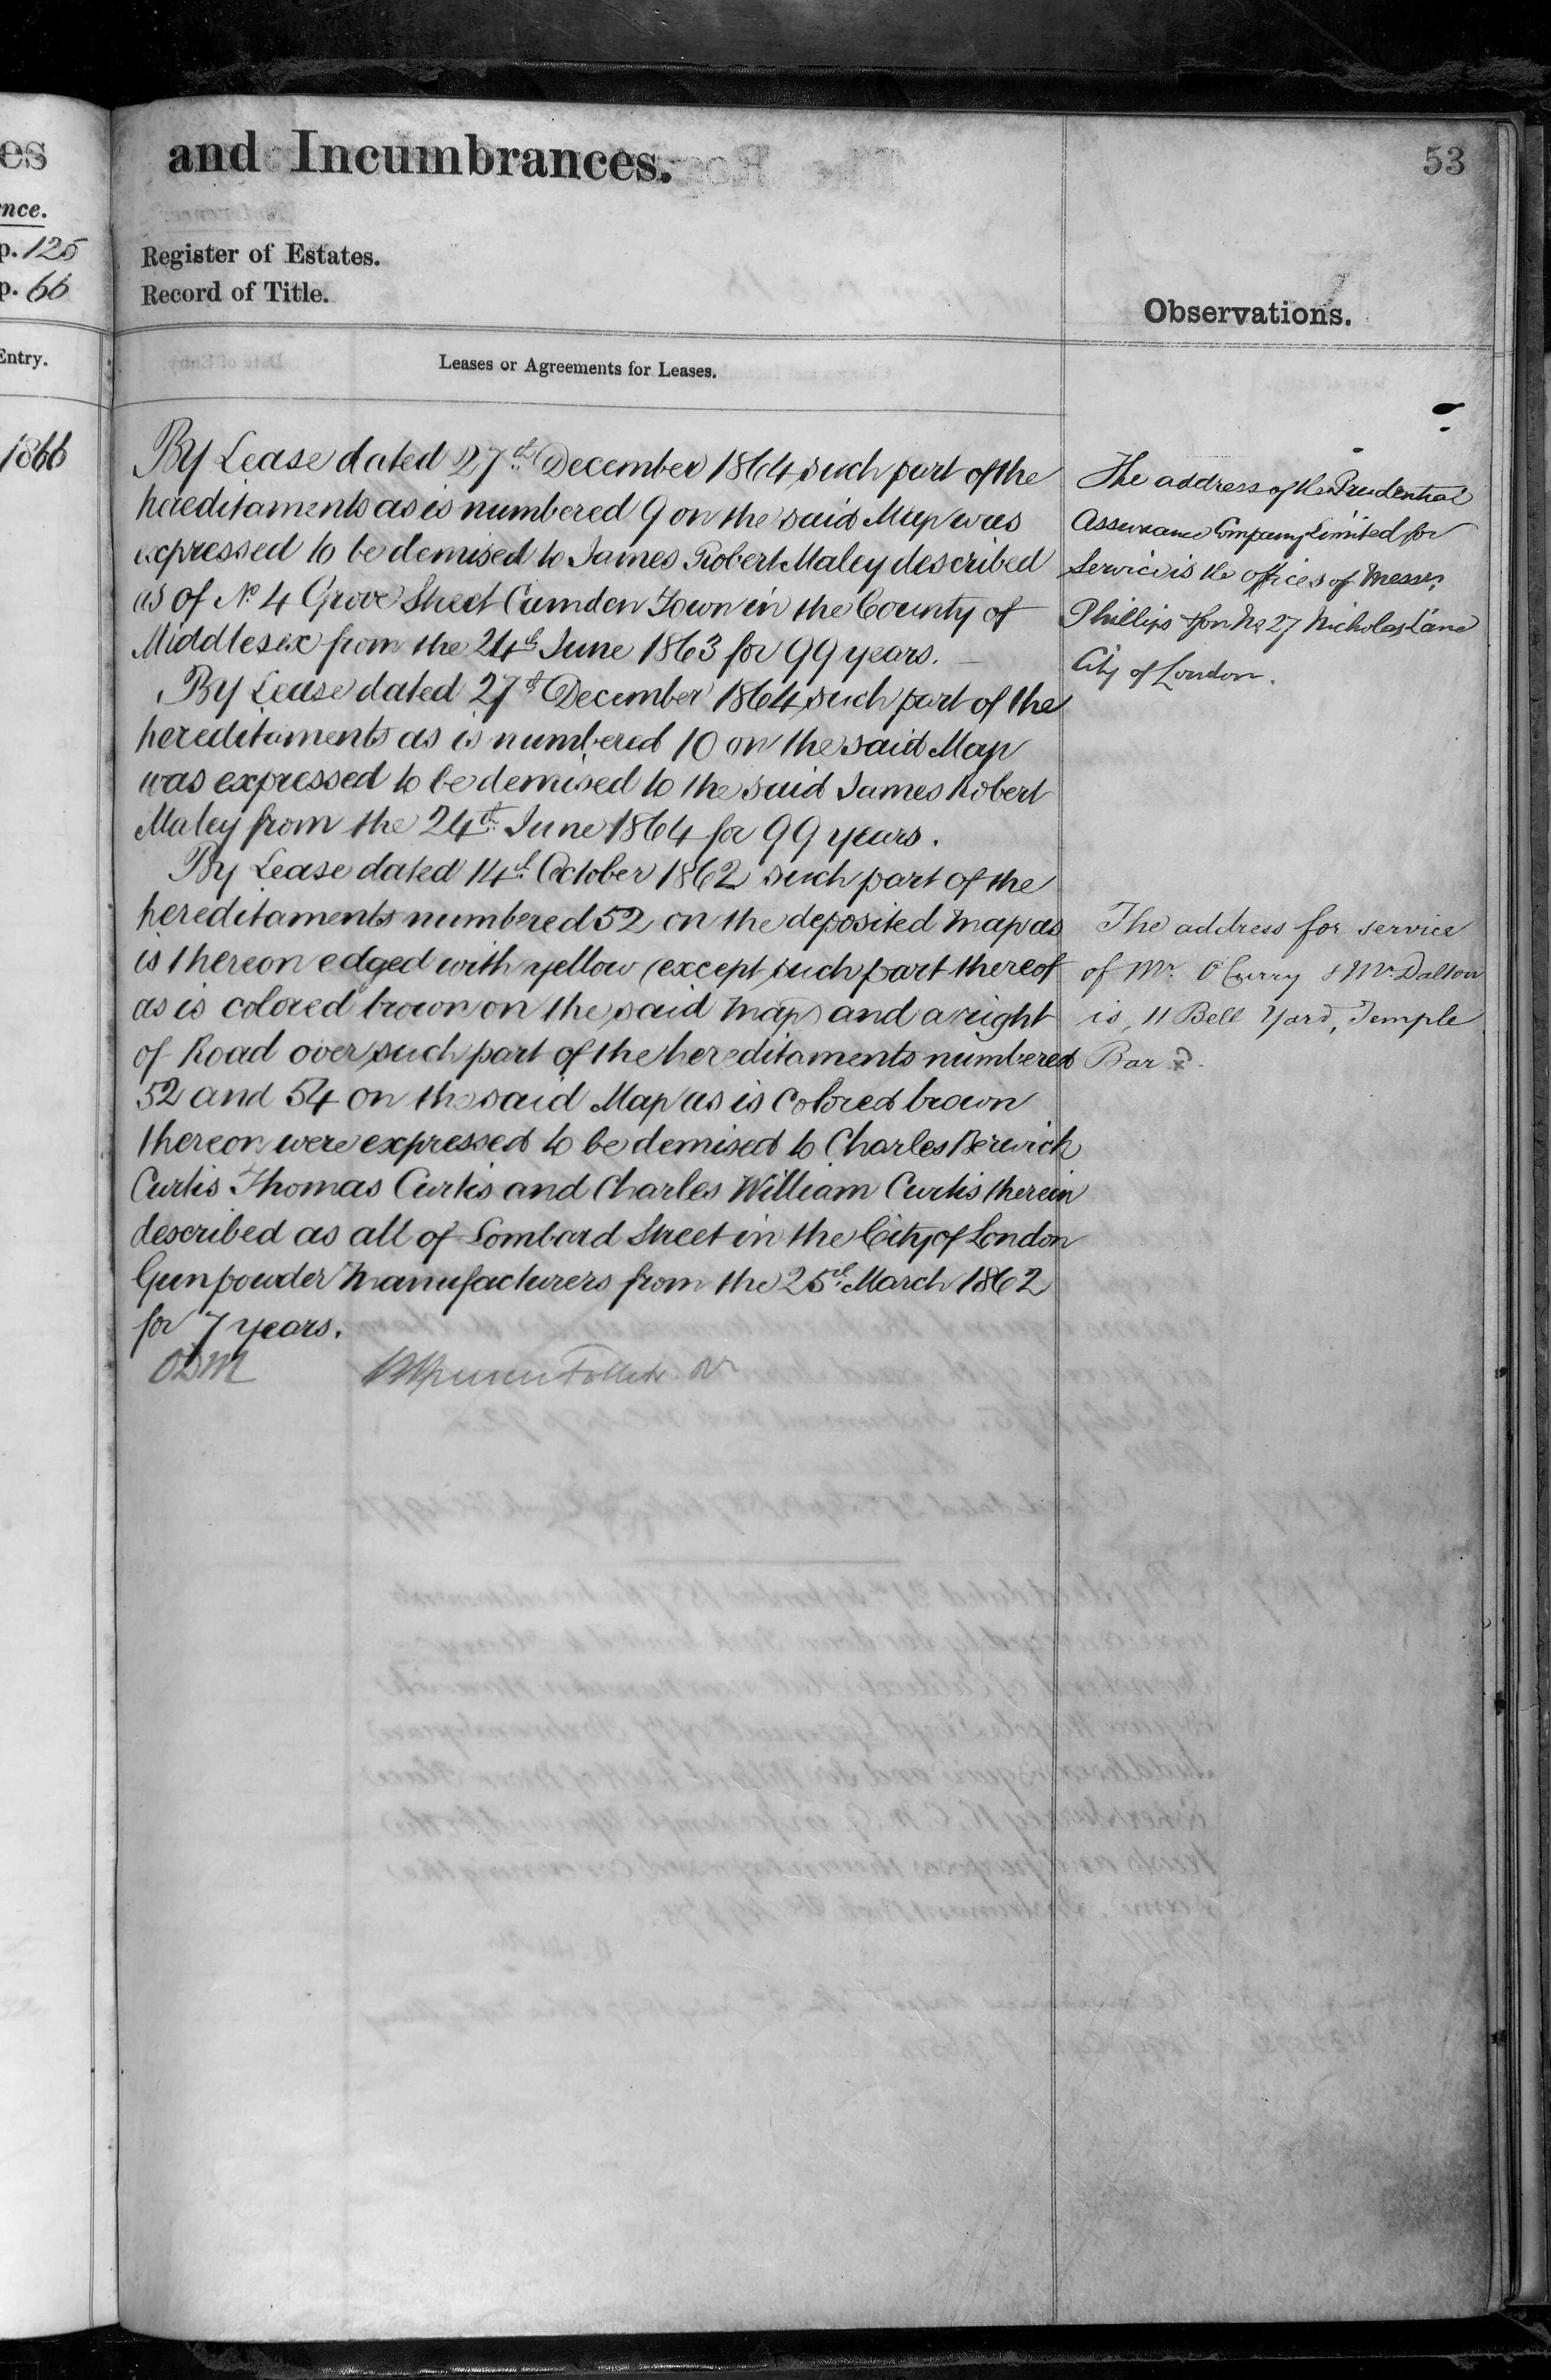 es
nce.
p. 125
p. 66
Entry.
1866
and Incumbrances.
53
Register of Estates.
Record of Title.
Observations.
Leases or Agreements for Leases.
By Lease dated 27th December 1864 such part of the
hereditaments as is numbered 9 on the said Map was
expressed to be demised to James Robert Maley described
as of No. 4 Grove Street Camden Town in the County of
Middlesex from the 24th June 1863 for 99 years.
By Lease dated 27th December 1864 such part of the
hereditaments as is numbered 10 on the said Map
was expressed to be demised to the said James Robert
Maley from the 24th June 1864 for 99 years.
By Lease dated 14th October 1862 such part of the
hereditaments numbered 52 on the deposited Map as
is thereon edged with yellow (except such part thereof
as is colored brown on the said Map) and a right
of Road over such part of the hereditaments numbered
52 and 54 on the said Map as is colored brown
thereon were expressed to be demised to Charles Berwick
Curtis Thomas Curtis and Charles William Curtis therein
described as all of Lombard Street in the City of London
Gunpowder Manufacturers from the 25th March 1862
for 7 years.
ODM
The address of the Prudential
Assurance Company Limited for
Service is the offices of Messrs.
Phillips & Son No. 27 Nicholas Lane
City of London.
The address for service
of Mr. O'Curry & Mr. Dalton
is, 11 Bell Yard, Temple
Bar